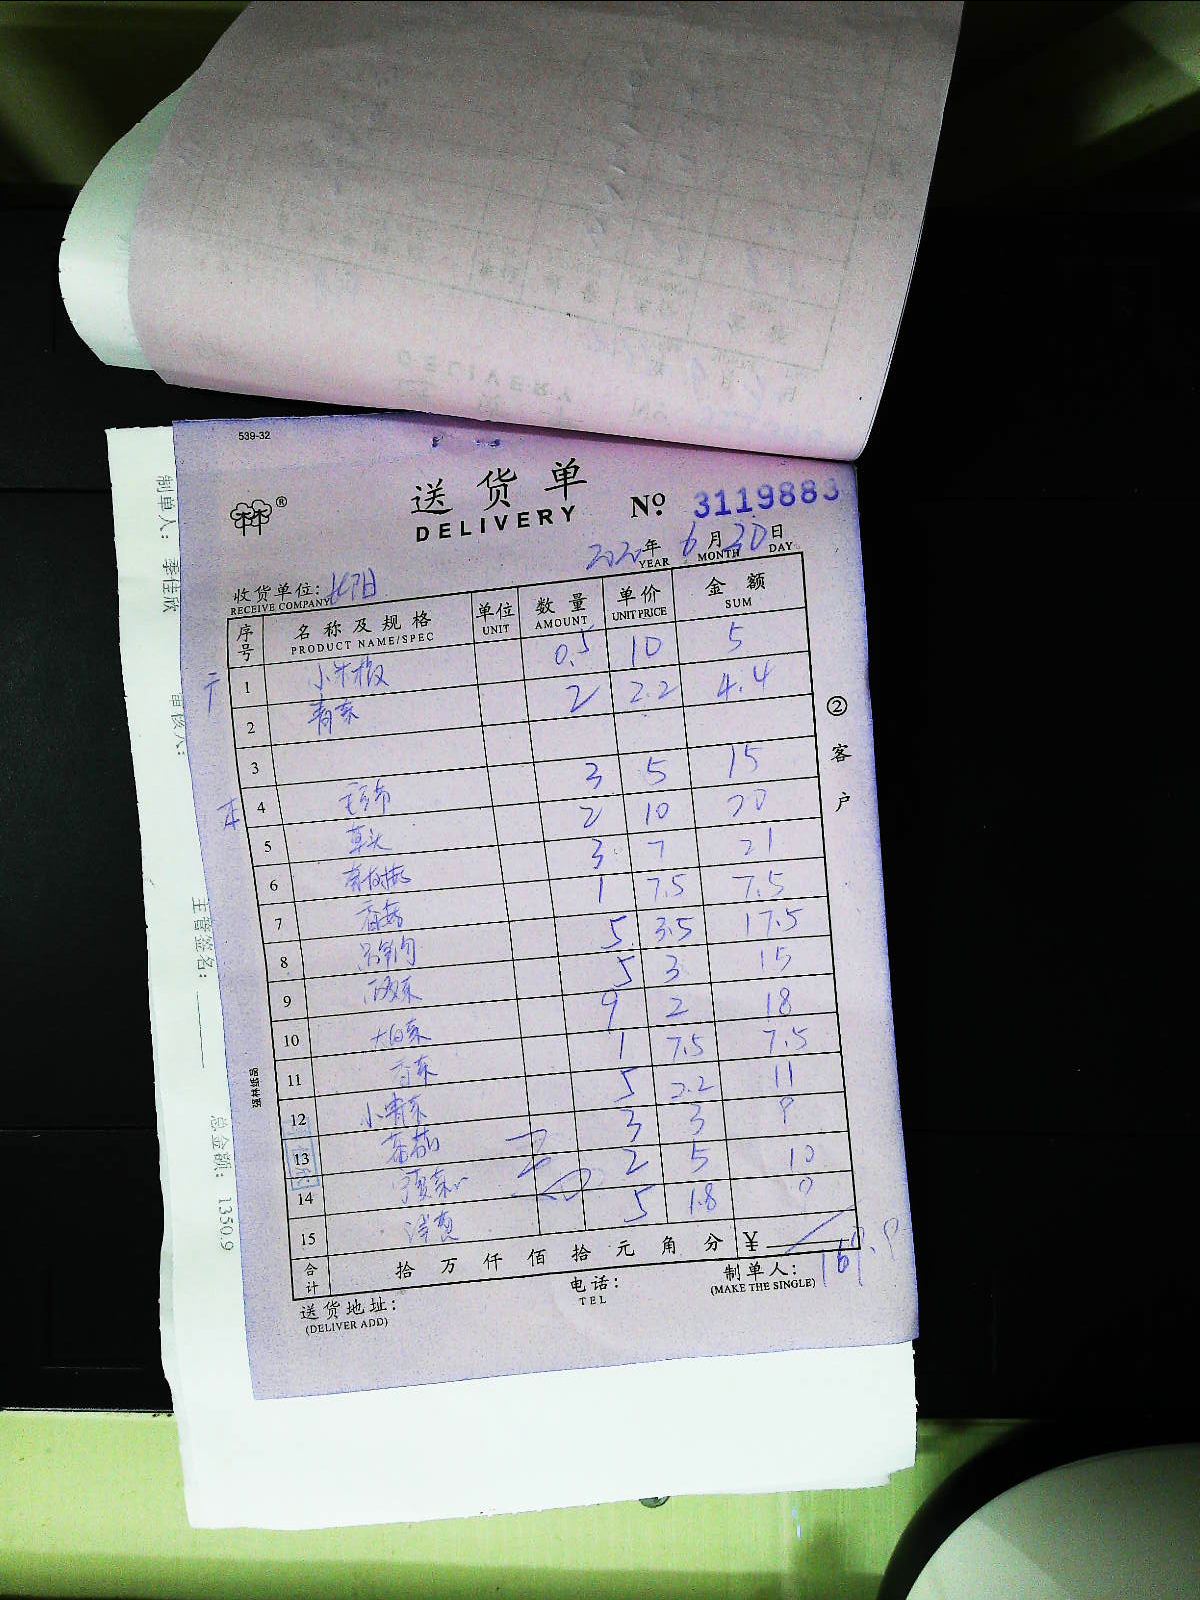 539-32
送货单
DELIVERY
No. 3119883
2020年 6月 30日
YEAR MONTH DAY
收货单位:
RECEIVE COMPANY
序号 名称及规格 单位 数量 单价 金额
PRODUCT NAME/SPEC UNIT AMOUNT UNIT PRICE SUM
1 小米椒 0.5 10 5
2 青菜 2 2.2 4.4
3
4 3 5 15
5 草头 2 10 20
6 3 7 21
7 香菇 1 7.5 7.5
8 5 3.5 17.5
9 5 3 15
10 大白菜 9 2 18
11 香菜 1 7.5 7.5
12 小青菜 5 2.2 11
13 番茄 3 3 9
14 2 5 10
15 5 1.8 9
合计 拾 万 仟 佰 拾 元 角 分 ¥
送货地址:
(DELIVER ADD)
电话:
TEL
制单人:
(MAKE THE SINGLE)
②客户
制单人: 李佳欣
审核人:
主管签名:
总金额: 1350.9